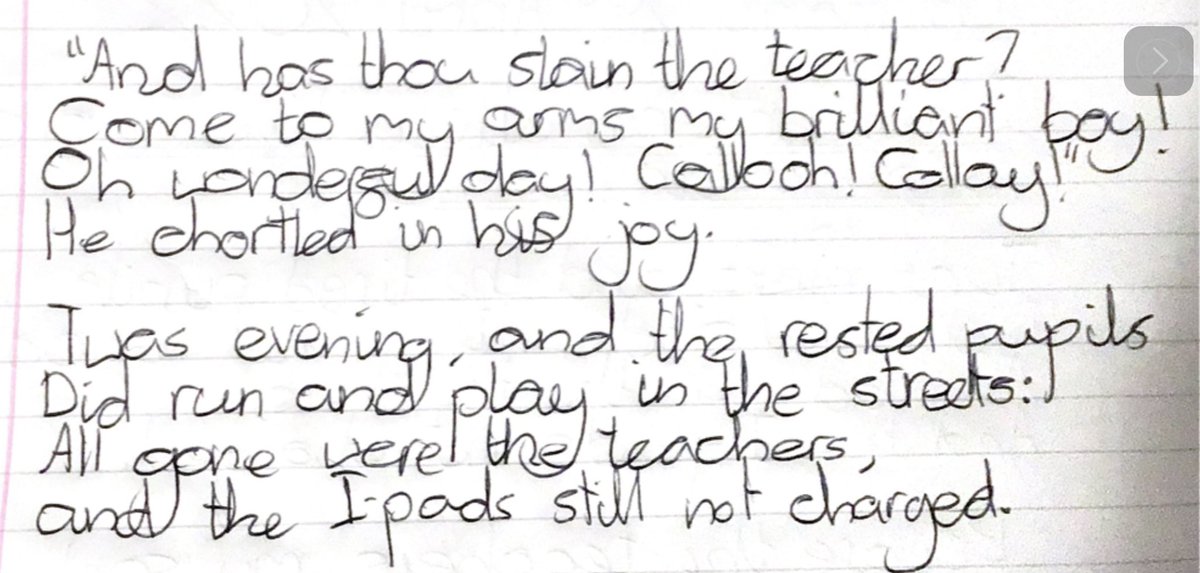 "And has thou slain the teacher?
Come to my arms my brilliant boy!
Oh wonderful day! Callooh! Callay!"
He chortled in his joy.
Twas evening, and the rested pupils
Did run and play in the streets:
All gone were the teachers,
and the I-pads still not charged.